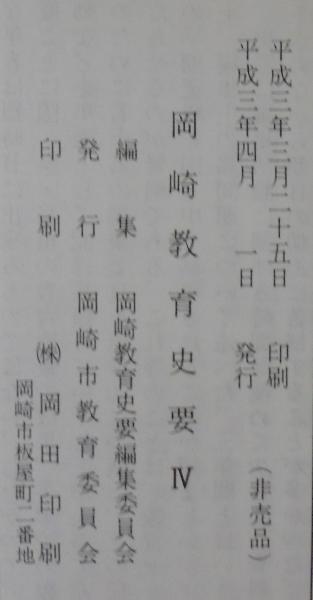 平成三年三月二十五日 印刷
平成三年四月 一日 発行
（非売品）
岡崎教育史要 Ⅳ
編集 岡崎教育史要編集委員会
発行 岡崎市教育委員会
印刷 ㈱岡田印刷
岡崎市板屋町二番地